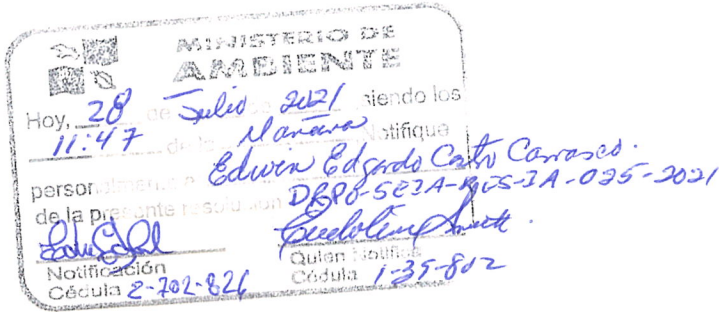 MINISTERIO DE
AMBIENTE
Hoy, 28 de Julio 2021 siendo los
11:47 de la Mañana Notifique
personalmente a Edwin Edgardo Castro Carrasco.
de la presente resolución DRPO-SEIA-RES-IA-025-2021
Notificación Quien Notifica
Cédula 2-702-826 Cédula 1-39-802